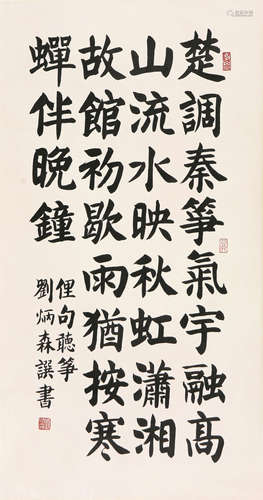 楚調秦箏氣宇融高
山流水映秋虹瀟湘
故館初歇雨猶按寒
蟬伴晚鐘
俚句聽箏
劉炳森譔書